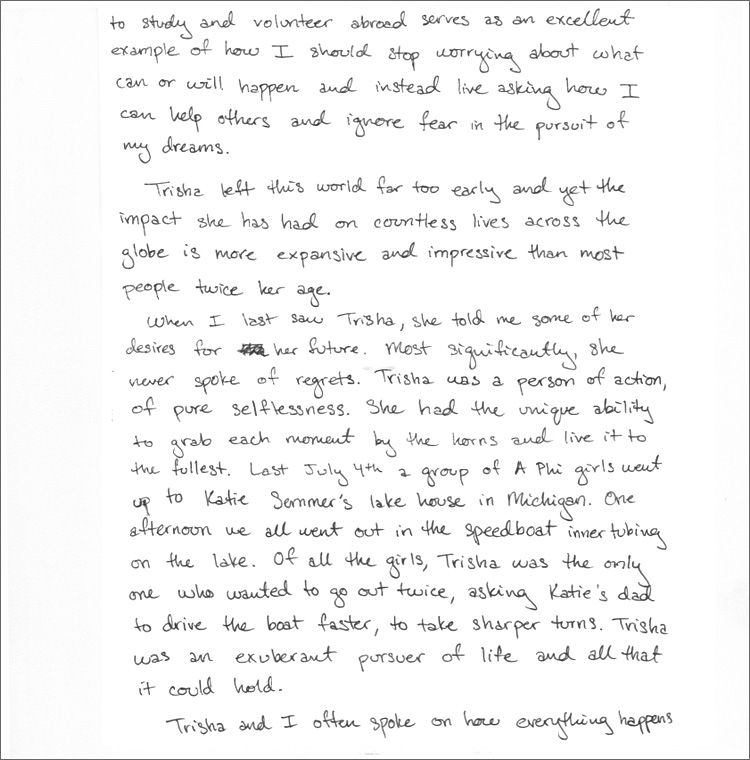 to study and volunteer abroad serves as an excellent
example of how I should stop worrying about what
can or will happen and instead live asking how I
can help others and ignore fear in the pursuit of
my dreams.
Trisha left this world far too early and yet the
impact she has had on countless lives across the
globe is more expansive and impressive than most
people twice her age.
When I last saw Trisha, she told me some of her
desires for her future. Most significantly, she
never spoke of regrets. Trisha was a person of action,
of pure selflessness. She had the unique ability
to grab each moment by the horns and live it to
the fullest. Last July 4th a group of A Phi girls went
up to Katie Semmer's lake house in Michigan. One
afternoon we all went out in the speedboat inner tubing
on the lake. Of all the girls, Trisha was the only
one who wanted to go out twice, asking Katie's dad
to drive the boat faster, to take sharper turns. Trisha
was an exuberant pursuer of life and all that
it could hold.
Trisha and I often spoke on how everything happens